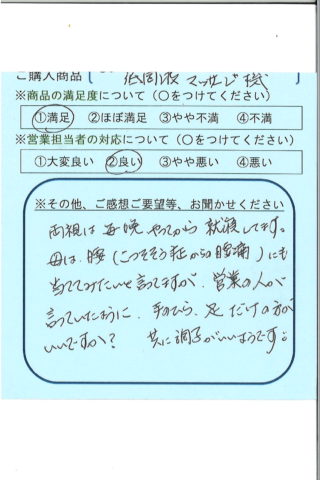 ご購入商品 低周波 マッサージ機
※商品の満足度について（○をつけてください）
①満足 ②ほぼ満足 ③やや不満 ④不満
※営業担当者の対応について（○をつけてください）
①大変良い ②良い ③やや悪い ④悪い
※その他、ご感想ご要望等、お聞かせください
両親は毎晩やってから就寝してます。
母は、腰（こつそそう症からの腰痛）にも
当ててみたいと言ってますが、営業の人が
言っていたように、手のひら、足だけの方が
いいですか？ 共に調子がいいようです。